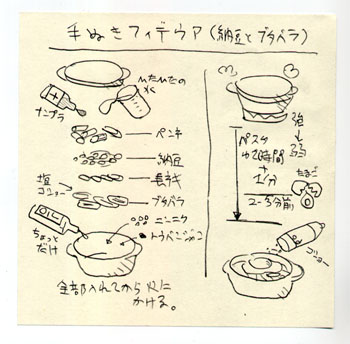 手ぬきフィデウア(納豆とブタバラ)
ひたひたの
水
ナンプラ
ペンネ
納豆
長ネギ
ブタバラ
塩
コショー
OIL
ちょっと
だけ
ニンニク
トウバンジャン
全部入れてから火に
かける。
強
弱
パスタ
ゆで時間
1分
たまご
2〜3分前
コショー